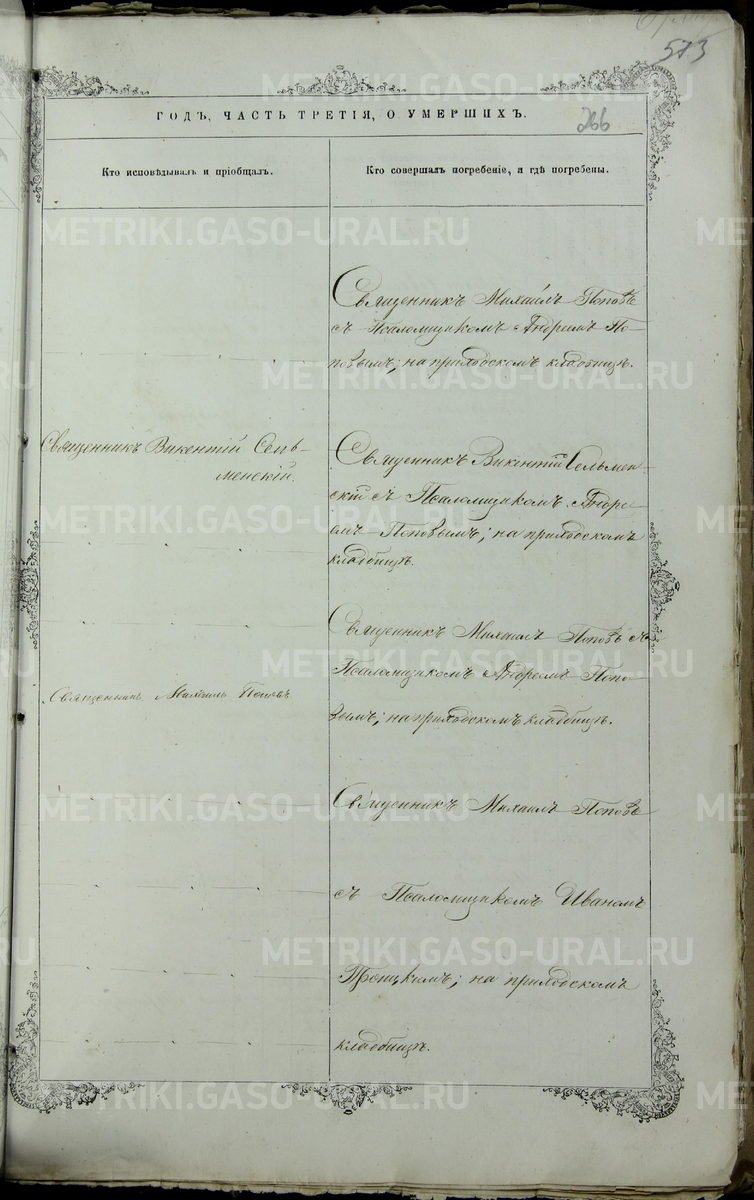 573
ГОДЪ, ЧАСТЬ ТРЕТІЯ, О УМЕРШИХЪ.
266
Кто исповѣдывалъ и пріобщалъ.
Кто совершалъ погребеніе, и гдѣ погребены.
Священникъ Михаилъ Поповъ
съ Псаломщикомъ Андреемъ По-
повымъ; на приходскомъ кладбищѣ.
Священникъ Викентій Сель-
менскій.
Священникъ Викентій Сельмен-
скій съ Псаломщикомъ Андре-
емъ Поповымъ; на приходскомъ
кладбищѣ.
Священникъ Михаилъ Поповъ съ
Псаломщикомъ Андреемъ Попо-
вымъ; на приходскомъ кладбищѣ.
Священникъ Михаилъ Поповъ
Священникъ Михаилъ Поповъ
съ Псаломщикомъ Иваномъ
Троицкимъ; на приходскомъ
кладбищѣ.
METRIKI.GASO-URAL.RU